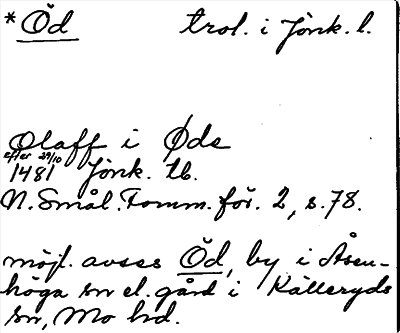 * Öd trol. i Jönk. l.
Olaff i Øde
efter 29/10
1481 Jönk. tb.
N. Smål. Fornm. för. 2, s. 78.
möjl. avses Öd, by i Åsen-
höga sn el. gård i Källeryds
sn, Mo hd.